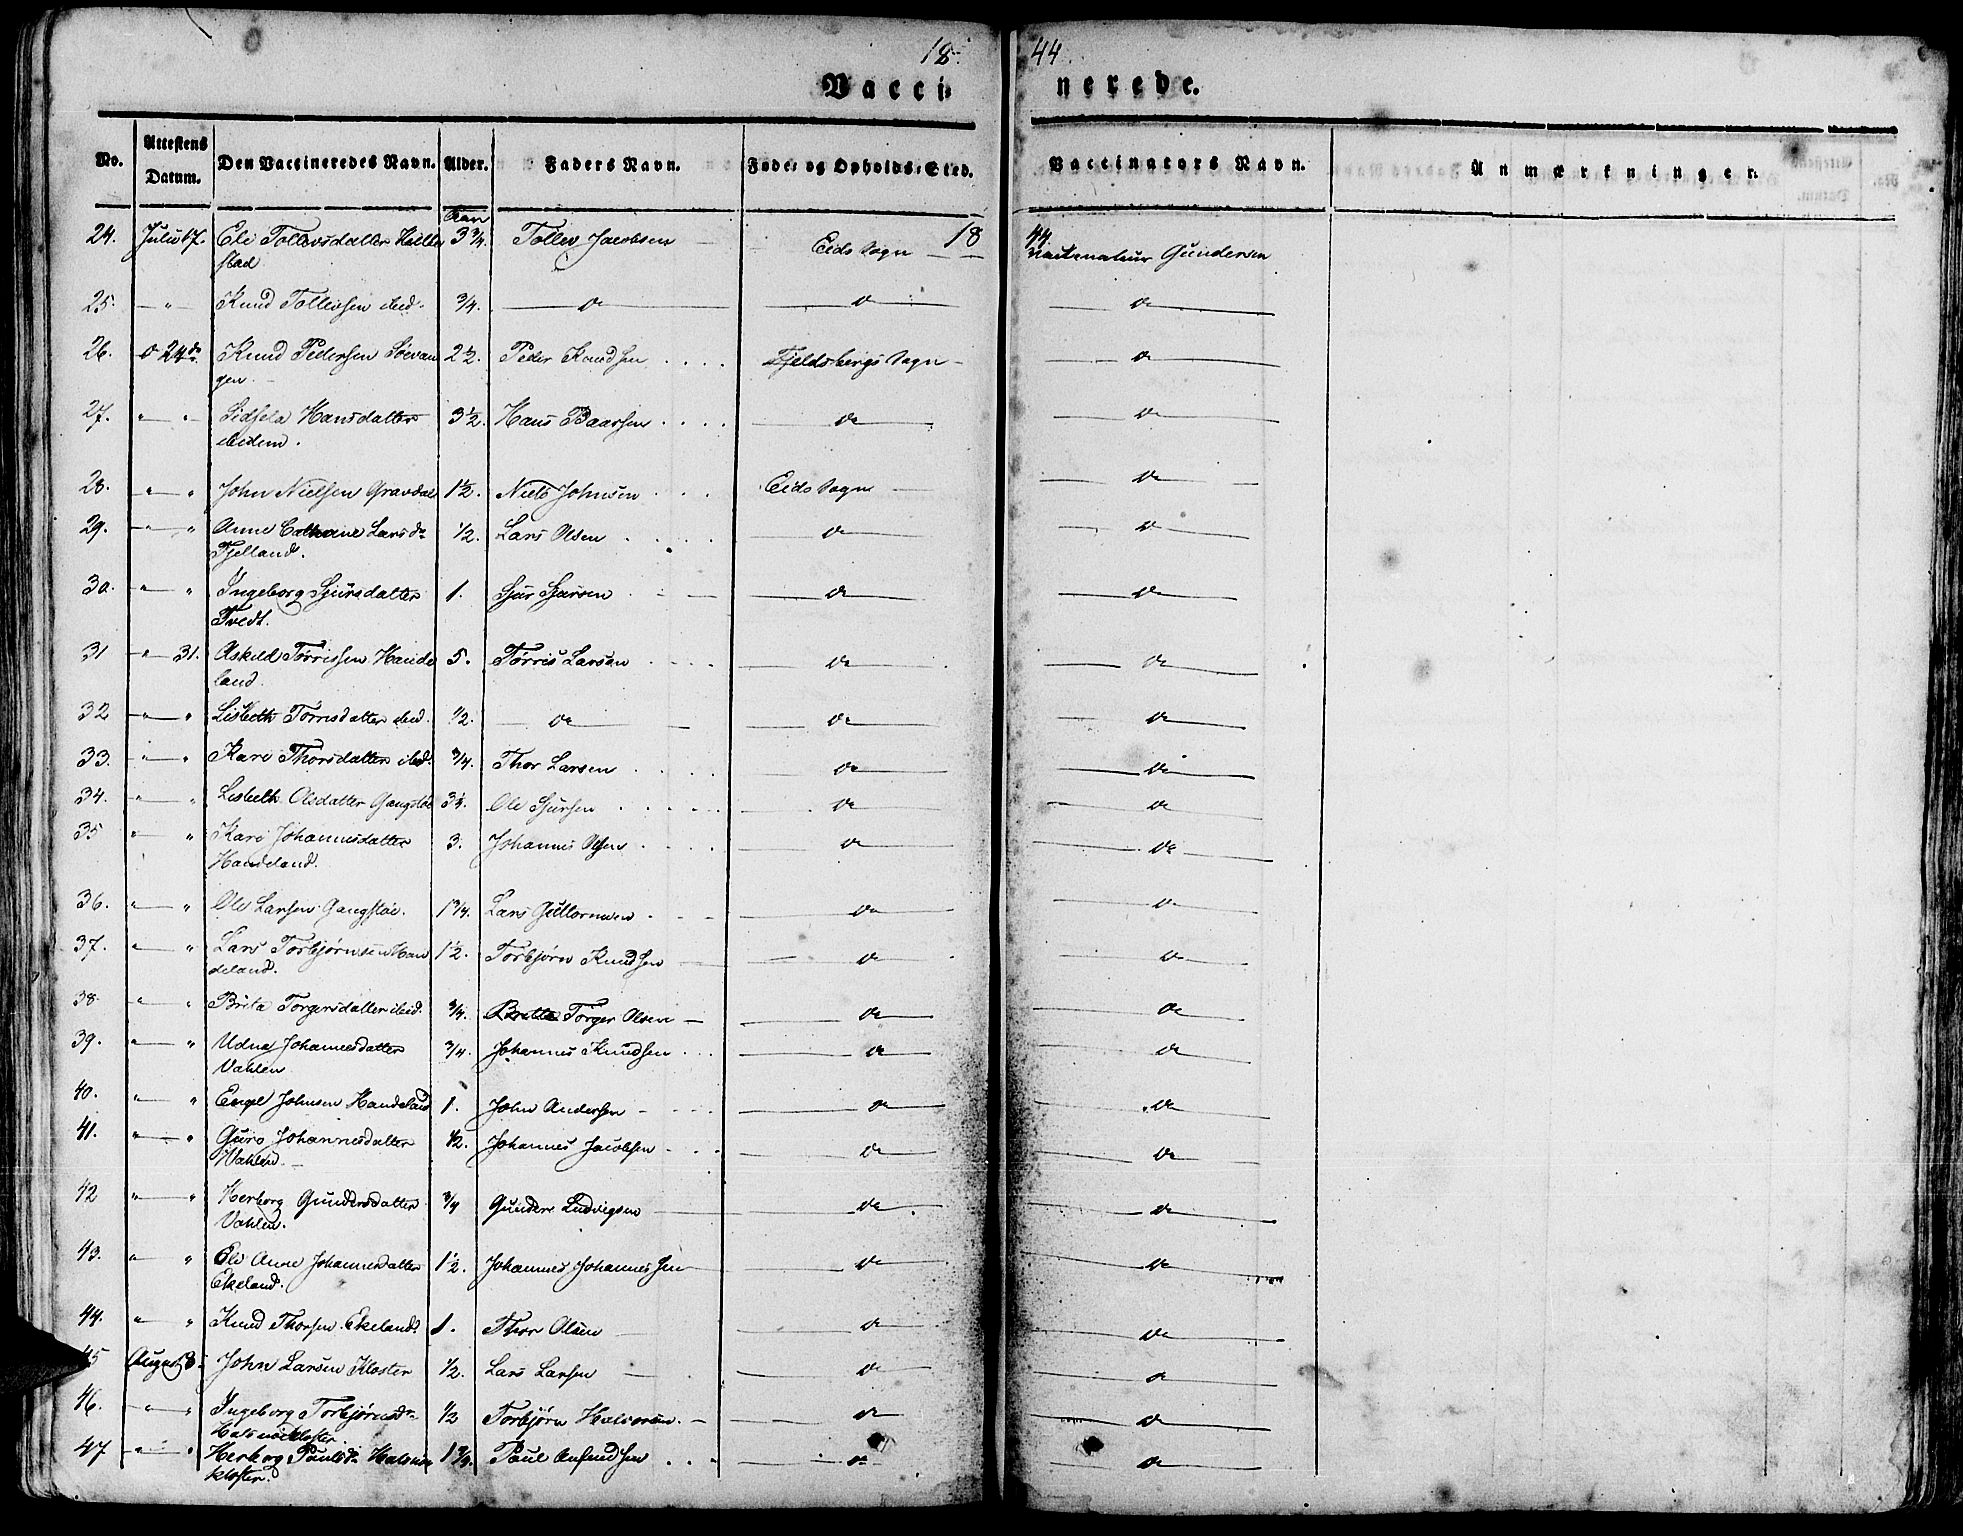 18 44
Vacci- nerede.
No. Attestens Datum. Den Vaccineredes Navn. Alder. Faders Navn. Føde- og Opholds-Sted. Vaccinators Navn. Anmærkninger.
Aar 18 44
24. Juli 17. Ele Tollevsdatter 3 3/4. Tollev Jacobsen Eids Sogn Gundersen
stad.
25. " Knud Tollevsen ibid. 3/4. do do do
26. " 24de Knud Pedersen Søevan 2 1/2. Peder Knudsen Fjeldsbergs Sogn do
gen.
27. " " Sidsela Hansdatter 3 1/2. Hans Baarsen do do
ibidem.
28. " " John Nielsen Gravdal 1 1/2. Niels Johnsen Eids Sogn do
29. " " Anne Cathrine Larsdr 1/2. Lars Olsen do do
Fjelland.
30. " " Ingeborg Sjursdatter 1. Sjur Sjursen do do
Tvedt.
31 " 31. Askild Tørrissen Hande 5. Tørris Larsen do do
land.
32 " " Lisbeth Tørrisdatter ibid. 1/2. do do do
33. " " Kari Thorsdatter ibid. 3/4. Thor Larsen do do
34. " " Lisbeth Olsdatter Gangstøe 3 1/2. Ole Sjursen do do
35 " " Kari Johannesdatter 3. Johannes Olsen do do
Handeland.
36. " " Ole Larsen Gangstøe. 1 3/4. Lars Guttormsen do do
37. " " Lars Torbjørnsen Han 1 1/2. Torbjørn Knudsen do do
deland.
38. " " Brita Torgersdatter ibid. 3/4. Torger Olsen do do
39. " " Udna Johannesdatter 3/4. Johannes Knudsen do do
Vahlen
40. " " Engel Johnsen Handeland 1. John Andersen do do
41. " " Guro Johannesdatter 1/2. Johannes Jacobsen do do
Vahlen.
42 " " Herborg Gundersdatter 3/4 Gunder Ludvigsen do do
Vahlen.
43. " " Ele Anne Johannesdatter 1 1/2. Johannes Johannessen do do
Ekeland.
44. " " Knud Thorsen Ekeland. 1. Thor Olsen do do
45 August 8. John Larsen Kloster 1/2. Lars Larsen do do
46. " " Ingeborg Torbjørnsdr 1/2 Torbjørn Halvorsen. do do
Halsnøekloster.
47 " " Herborg Paulsdr Halsnøe 1 3/4. Paul Anfindsen do do
kloster.